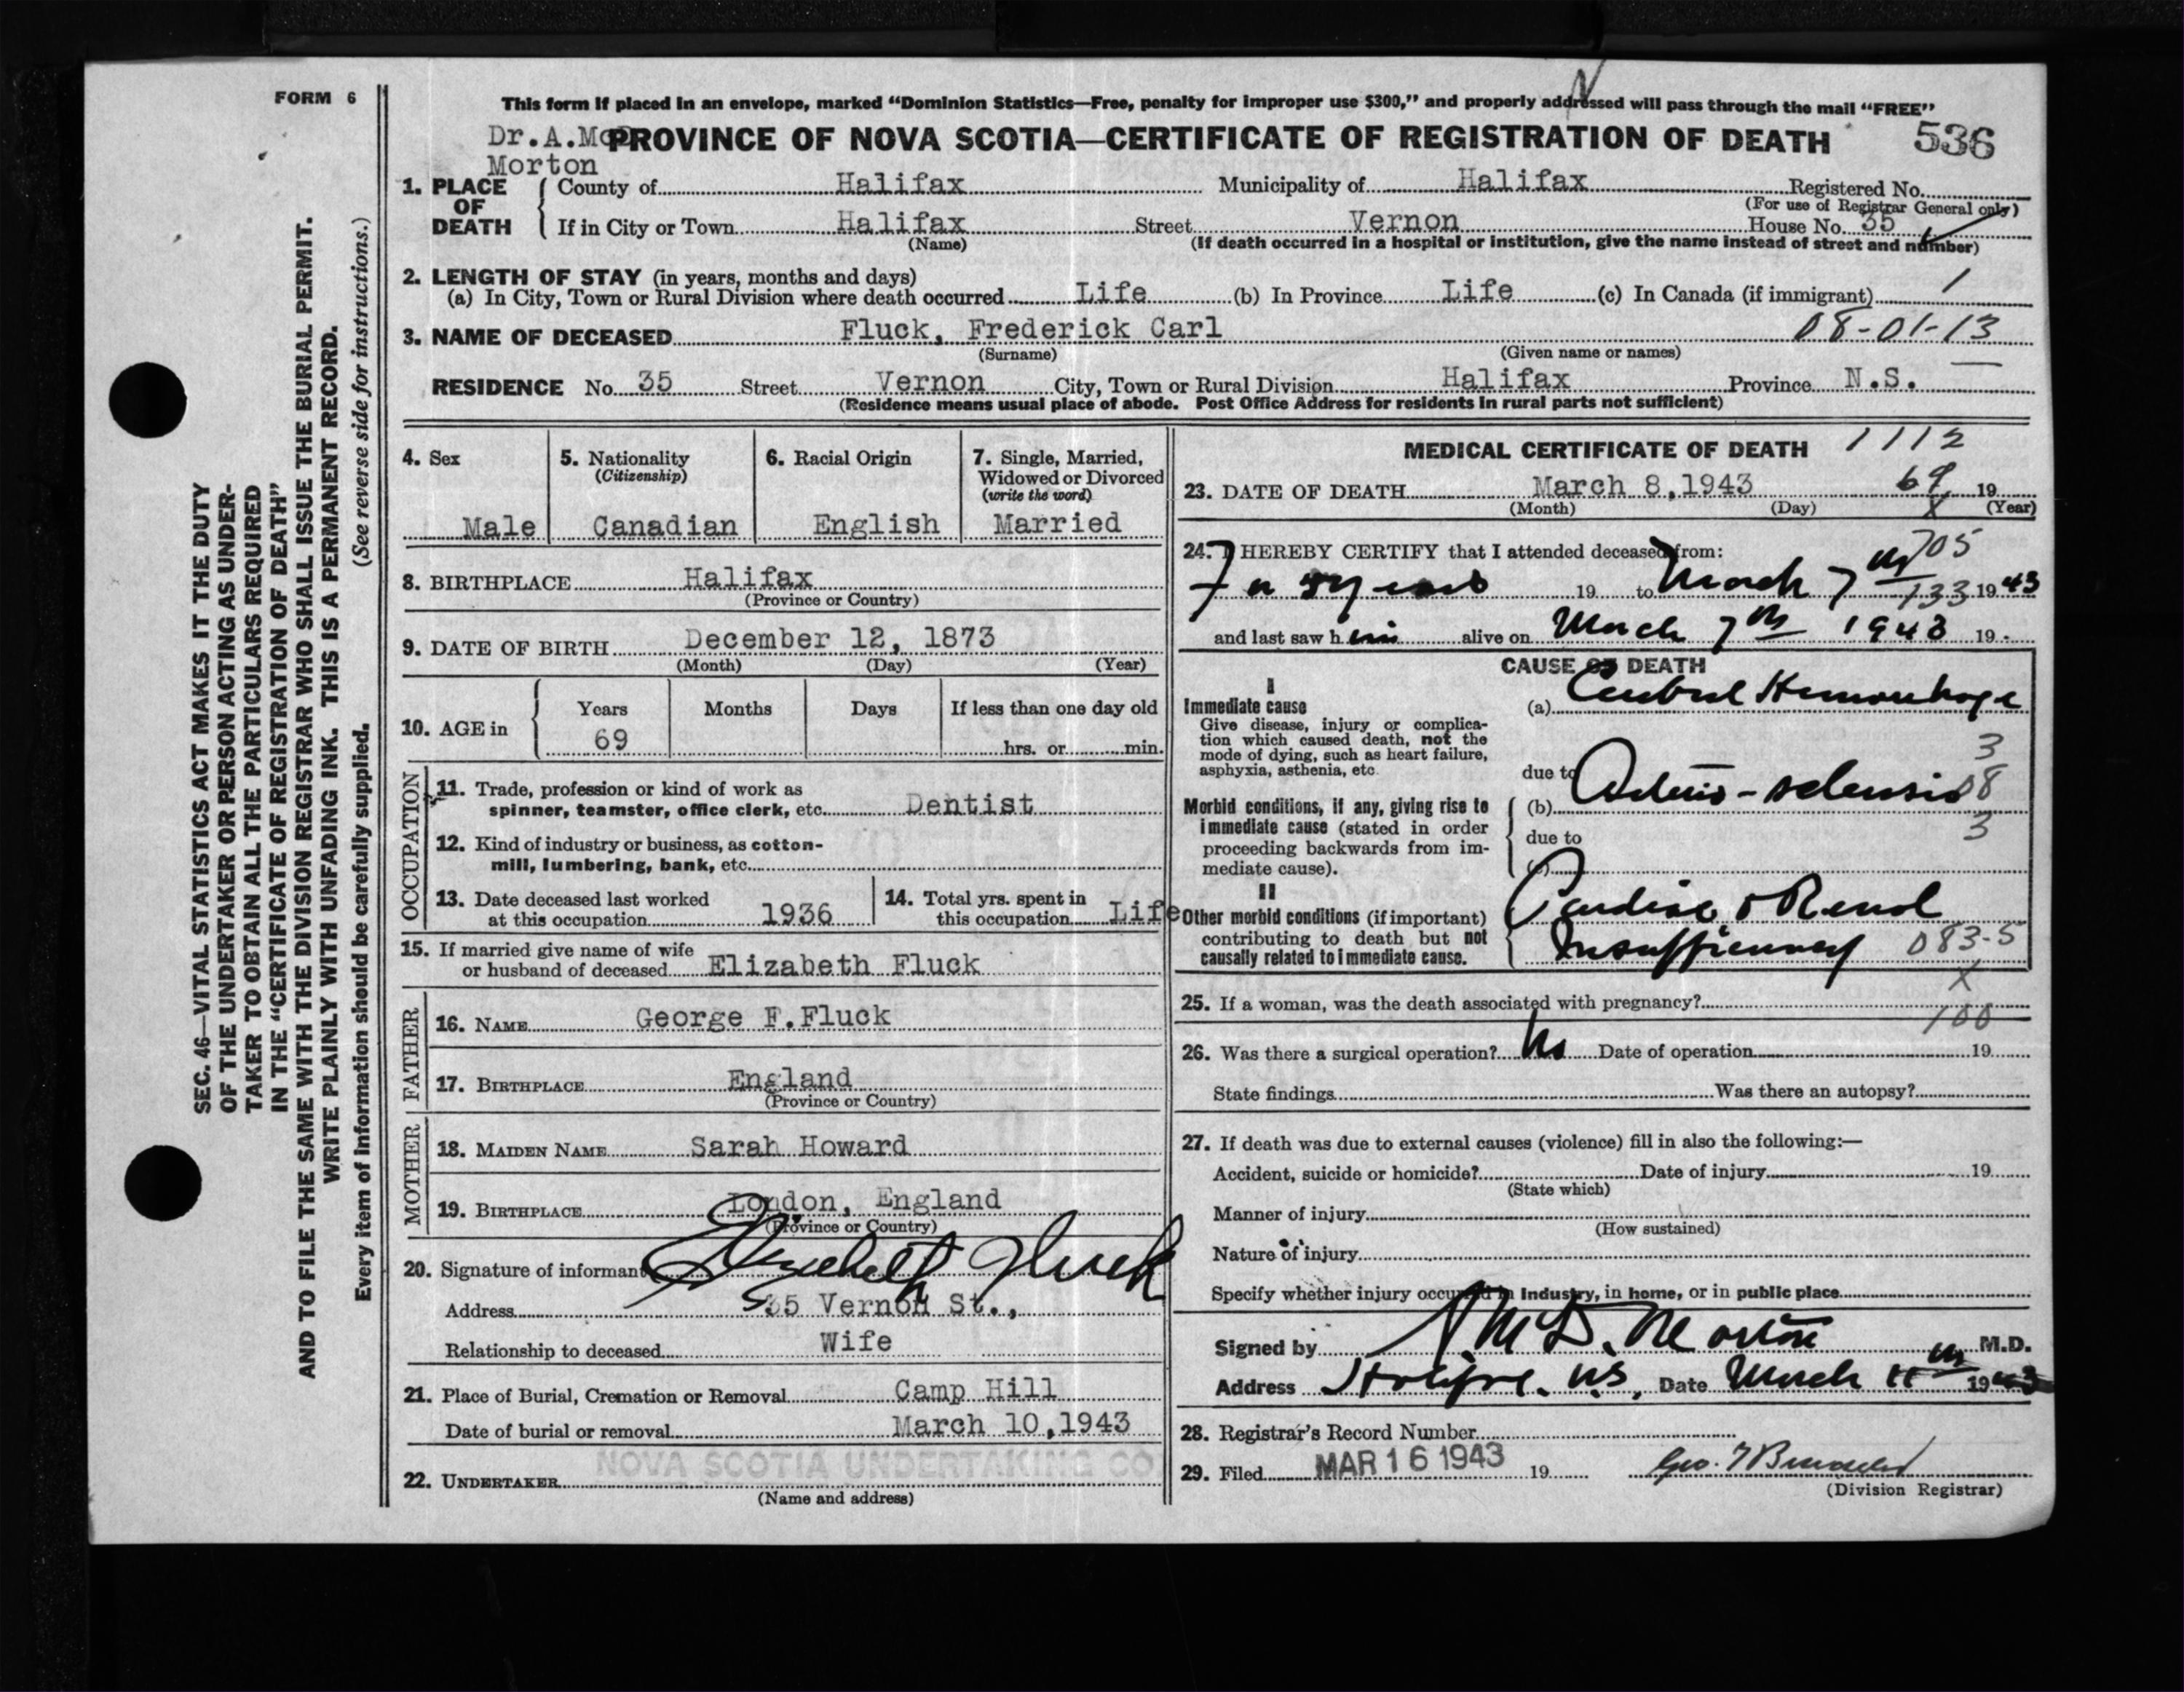 FORM 6
This form if placed in an envelope, marked “Dominion Statistics—Free, penalty for improper use $300,” and properly addressed will pass through the mail “FREE”
Dr.A.McD
Morton
PROVINCE OF NOVA SCOTIA—CERTIFICATE OF REGISTRATION OF DEATH 536
1. PLACE OF DEATH
County of Halifax Municipality of Halifax Registered No.
(For use of Registrar General only)
If in City or Town Halifax Street Vernon House No. 35
(Name) (If death occurred in a hospital or institution, give the name instead of street and number)
2. LENGTH OF STAY (in years, months and days)
(a) In City, Town or Rural Division where death occurred Life (b) In Province Life (c) In Canada (if immigrant) 1
3. NAME OF DECEASED Fluck, Frederick Carl 08-01-13
(Surname) (Given name or names)
RESIDENCE No. 35 Street Vernon City, Town or Rural Division Halifax Province N.S.
(Residence means usual place of abode. Post Office Address for residents in rural parts not sufficient)
4. Sex Male
5. Nationality (Citizenship) Canadian
6. Racial Origin English
7. Single, Married, Widowed or Divorced (write the word) Married
8. BIRTHPLACE Halifax
(Province or Country)
9. DATE OF BIRTH December 12, 1873
(Month) (Day) (Year)
10. AGE in Years Months Days If less than one day old
69 hrs. or min.
OCCUPATION
11. Trade, profession or kind of work as
spinner, teamster, office clerk, etc. Dentist
12. Kind of industry or business, as cotton-
mill, lumbering, bank, etc.
13. Date deceased last worked
at this occupation 1936
14. Total yrs. spent in
this occupation Life
15. If married give name of wife
or husband of deceased Elizabeth Fluck
FATHER
16. NAME George F.Fluck
17. BIRTHPLACE England
(Province or Country)
MOTHER
18. MAIDEN NAME Sarah Howard
19. BIRTHPLACE London, England
(Province or Country)
20. Signature of informant Elizabeth Fluck
Address 35 Vernon St.,
Relationship to deceased Wife
21. Place of Burial, Cremation or Removal Camp Hill
Date of burial or removal March 10,1943
NOVA SCOTIA UNDERTAKING CO.
22. UNDERTAKER
(Name and address)
MEDICAL CERTIFICATE OF DEATH 1112
23. DATE OF DEATH March 8,1943 69 19
(Month) (Day) (Year)
24. I HEREBY CERTIFY that I attended deceased from: 705
years 19 to March 7 th 133 1943
and last saw h im alive on March 7th 1943 19
CAUSE OF DEATH
I
Immediate cause
Give disease, injury or complica-
tion which caused death, not the
mode of dying, such as heart failure,
asphyxia, asthenia, etc.
(a) Cerebral Hemorrhage
3
due to
Morbid conditions, if any, giving rise to
immediate cause (stated in order
proceeding backwards from im-
mediate cause).
(b) Arterio-sclerosis 08
due to 3
(c)
II
Other morbid conditions (if important)
contributing to death but not
causally related to immediate cause.
Cardiac & Renal
Insufficiency 083-5
X
25. If a woman, was the death associated with pregnancy?
100
26. Was there a surgical operation? No Date of operation 19
State findings Was there an autopsy?
27. If death was due to external causes (violence) fill in also the following:—
Accident, suicide or homicide? Date of injury 19
(State which)
Manner of injury
(How sustained)
Nature of injury
Specify whether injury occurred in Industry, in home, or in public place
Signed by A. McD. Morton M.D.
Address Halifax. N.S. Date March 11th 1943
28. Registrar's Record Number
29. Filed MAR 16 1943 19
(Division Registrar)
SEC. 46—VITAL STATISTICS ACT MAKES IT THE DUTY
OF THE UNDERTAKER OR PERSON ACTING AS UNDER-
TAKER TO OBTAIN ALL THE PARTICULARS REQUIRED
IN THE “CERTIFICATE OF REGISTRATION OF DEATH”
AND TO FILE THE SAME WITH THE DIVISION REGISTRAR WHO SHALL ISSUE THE BURIAL PERMIT.
WRITE PLAINLY WITH UNFADING INK. THIS IS A PERMANENT RECORD.
Every item of information should be carefully supplied. (See reverse side for instructions.)